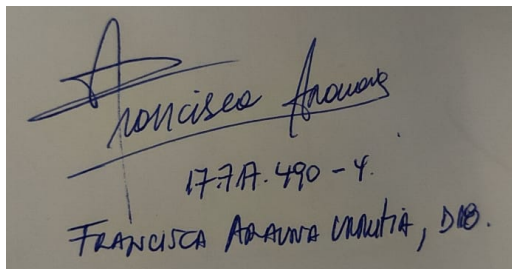 Francisca Arauna
17.717.490-4.
FRANCISCA ARAUNA URRUTIA, D18.